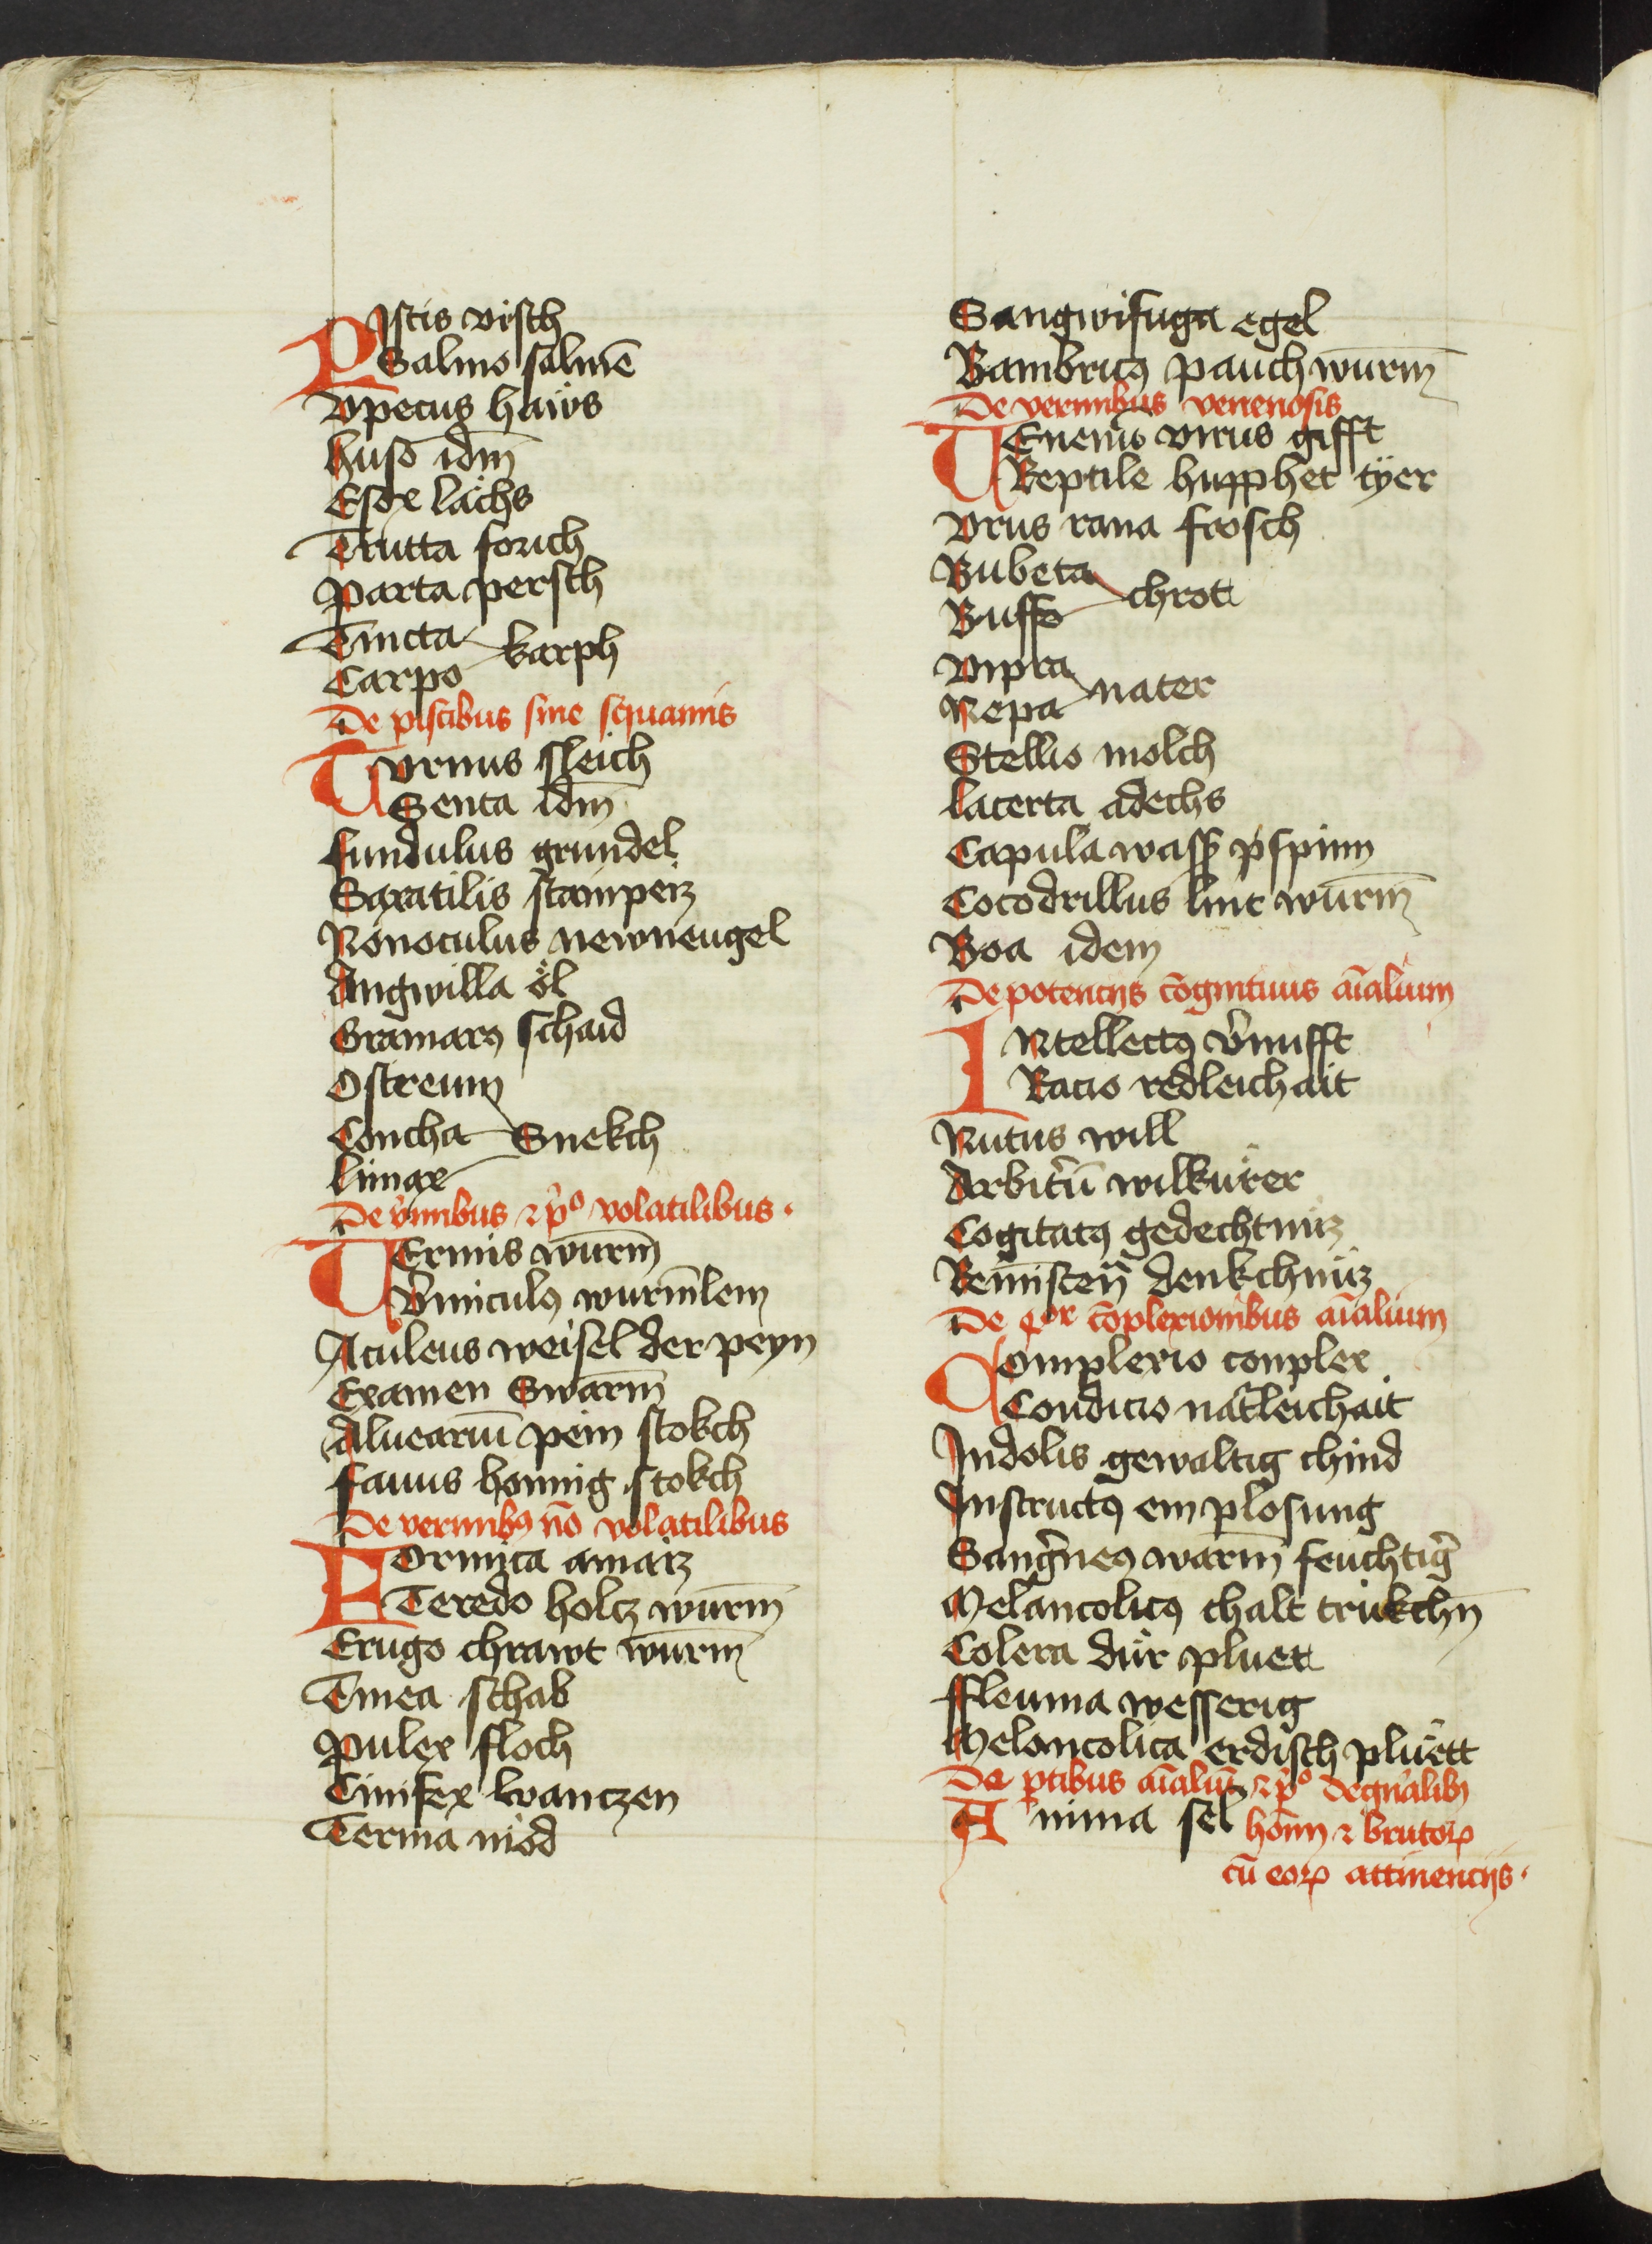 PIscis visch
Salmo salmē
Vpecus haẅs
husō idm̄
Esox lachs
Trutta forich
Parta persch
Tincta
karph
Carpo
De piscibus sine squamis
Turnus sleich
Genta idm̄
fundulus grundel
Saxatilis stainpeiz
Nonoculus newneugel
Angwilla öl
Gramarꝰ schaid
Ostreum
Concha Snekch
limax
De v̉mibus ⁊ pº volatilibus
VErmis wurm̄
V̉miculꝰ wurm̄lem
Aculeus weisel der peyn
Examen Swarm̄
Aluearíu pein stokch
fauus honnig stokch
De vermibꝰ nō volatilibus
FOrmica amaiz
Teredo holcz wurm̄
Erugo chrawt wurm̄
Tinea schab
Pulex floch
Cinifex wanczen
Terma mod
Sangwifuga egel
Bambricꝰ pauch wurm̄
De vermibus venenosis
VEnenū virus gifft
Reptile hupphet tÿer
Vrus rana frosch
Bubeta
chrot
Buffo
Vipra
nater
Nepa
Stellio molch
lacerta adechs
Capula wass pspinn
Cocodrillus lint wurm̄
Boa idem
De potencijs cōgnitiuis aīalium
INtellectꝰ v̉nufft
Racio redleichait
Nutus will
Arbit̉ū wilkurer
Cogitatꝰ gedechtnuz
Remiscēn denkchnuz
De qͦr cōplexionibus aīalium
Complexio conplex
Condicio nat̉leichait
Indolis gewaltig chind
Instructꝰ em plosung
Sangͥneꝰ warm̄ feuchtig̉
Melancolicꝰ chalt trukchn̄
Colera dür pluet
ffleuma wesserig
Melancolica erdisch pluett
De ꝑtibus aīaliū ⁊ pº de gn̉alibꝰ
Anima sel hom̄ ⁊ brutoꝝ
cū eoꝝ attinencijs